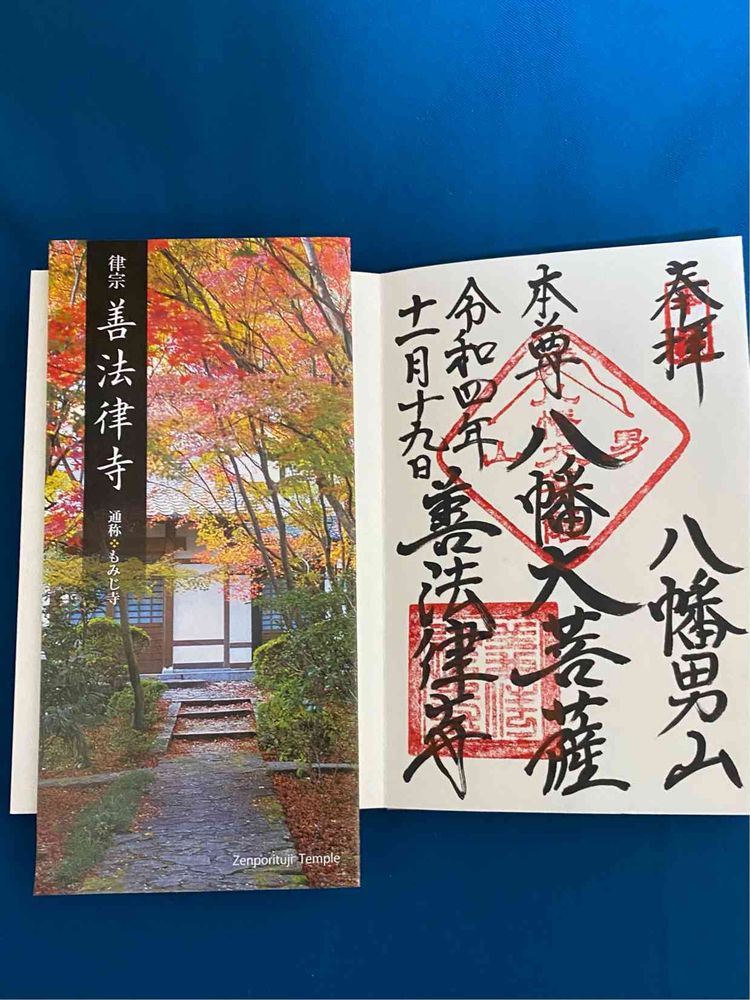 律宗
善法律寺
通称❖もみじ寺
Zenporituji Temple
奉拝
八幡男山
本尊八幡大菩薩
令和四年
十一月十九日
善法律寺